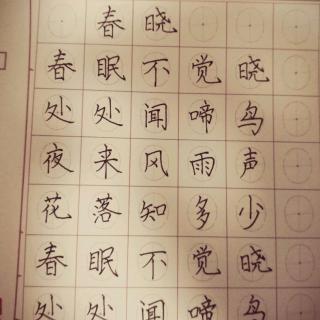 春晓
春眠不觉晓
处处闻啼鸟
夜来风雨声
花落知多少
春眠不觉晓
处处闻啼鸟